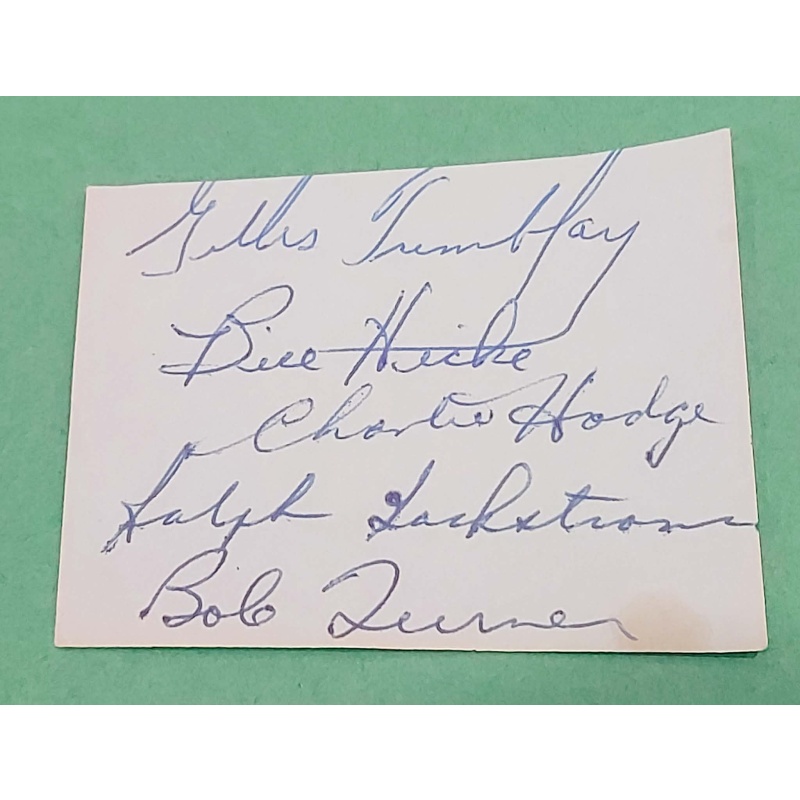 Gilles Tremblay
Bill Hicke
Charlie Hodge
Ralph Backstrom
Bob Turner